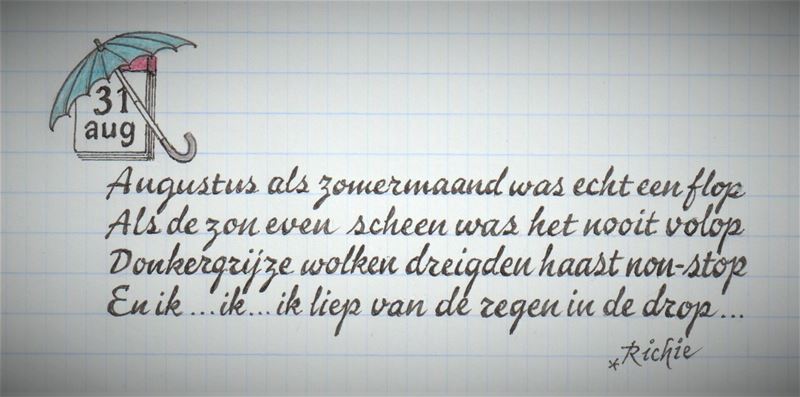 31
aug
Augustus als zomermaand was echt een flop
Als de zon even scheen was het nooit volop
Donkergrijze wolken dreigden haast non-stop
En ik ... ik... ik liep van de regen in de drop...
*Richie